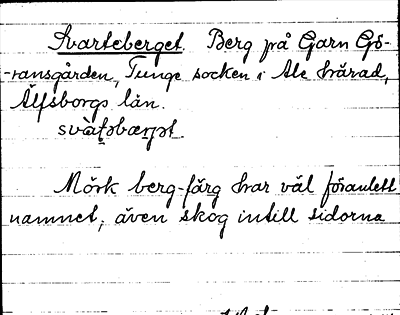 Svarteberget. Berg på Garn Gö-
-ransgården, Tunge socken i Ale härad,
Älfsborgs län.
Mörk berg-färg har väl föranlett
namnet, även skog intill sidorna